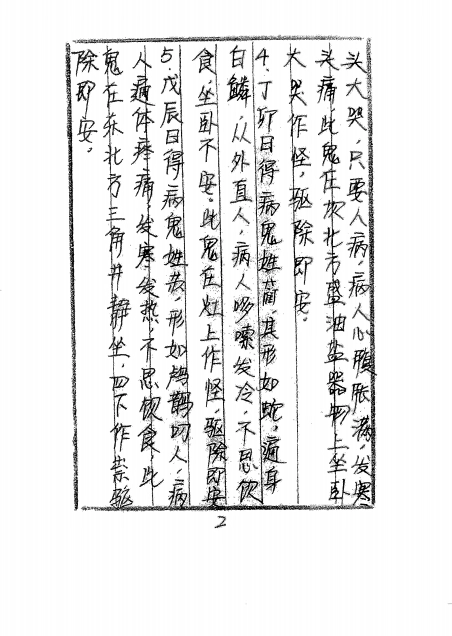 头大哭，只要人病，病人心腹胀满，发寒
头痛，此鬼在坎北方盛油盐器物上坐卧
大哭作怪，驱除即安。
4、丁卯日得病鬼姓蔄，其形如蛇，遍身
白鳞，从外直人，病人哆嗦发冷，不思饮
食，坐卧不安。此鬼在灶上作怪，驱除即安
5、戊辰日得病鬼姓黄，形如鸪鹊叼人，病
人遍体疼痛，发寒发热，不思饮食，此
鬼在东北方三角井静坐，四下作祟驱
除即安。
2